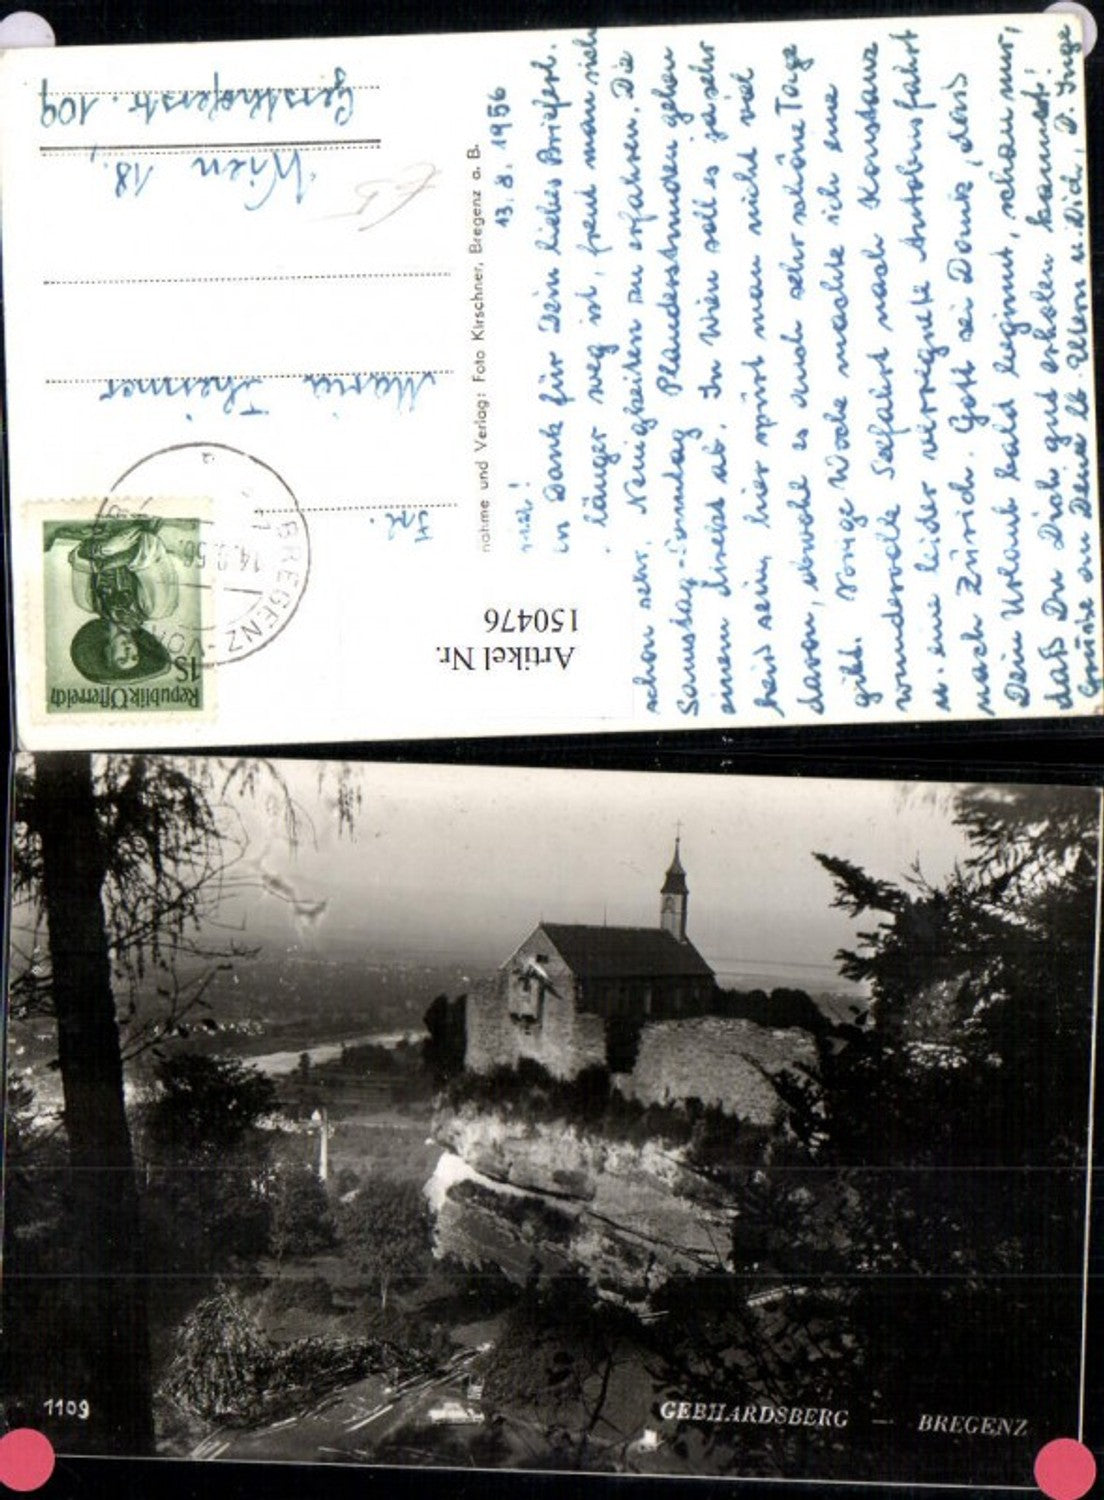 13. 8. 1956
Dank für Dein liebes Brieferl.
länger weg ist, freut man sich
schon sehr, Neuigkeiten zu erfahren. Die
Samstag-Sonntag Plauderstunden gehen
einem direkt ab. In Wien soll es ja sehr
heiß sein, hier spürt man nicht viel
davon, obwohl es auch sehr schöne Tage
gibt. Vorige Woche machte ich eine
wundervolle Seefahrt nach Konstanz
u. eine leider verregnete Autobusfahrt
nach Zürich. Gott sei Dank, daß
Dein Urlaub bald beginnt, schau nur,
daß Du Dich gut erholen kannst!
Grüße an Deine lb. Eltern u. Dich D. Inge
nahme und Verlag: Foto Kirschner, Bregenz a. B.
Frl.
Maria
Wien 18.,
Gersthoferstr. 109
Republik Österreich
1S
BREGENZ-VOR
14.8.56
Artikel Nr.
150476
1109
GEBHARDSBERG — BREGENZ